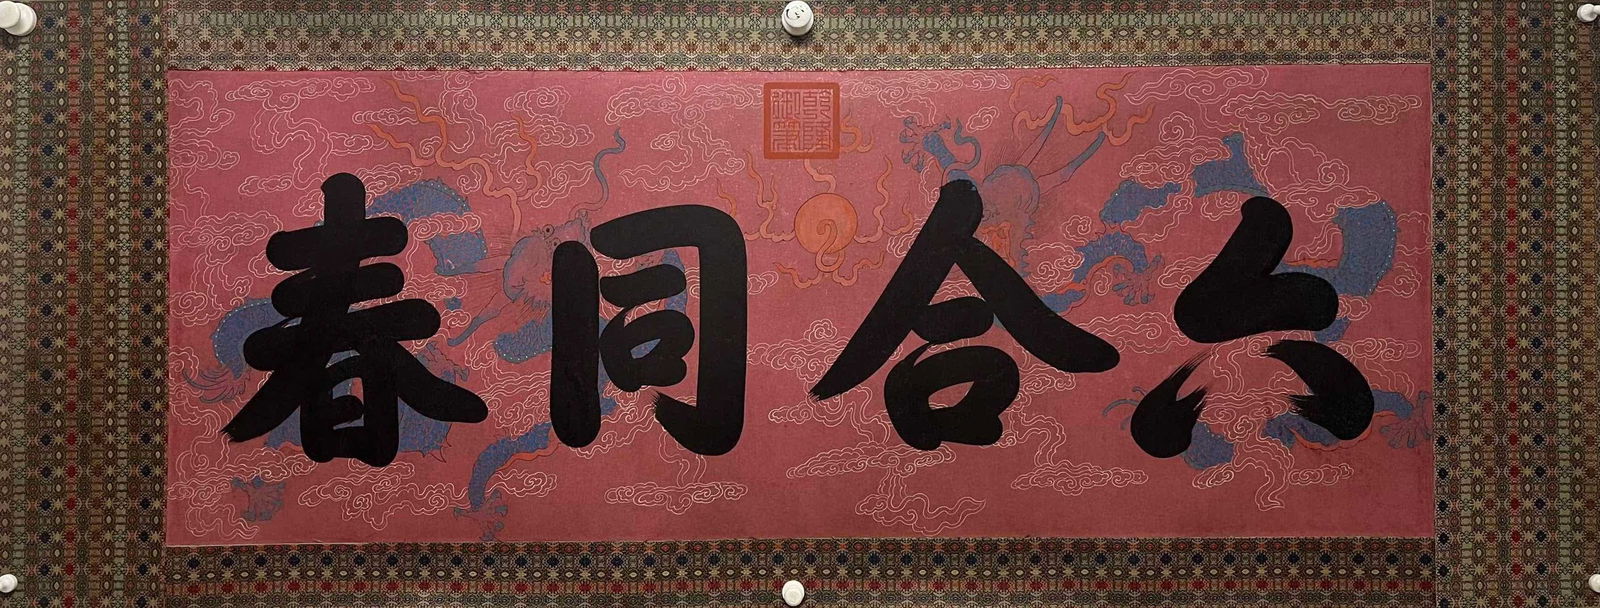 六合同春
乾隆御筆